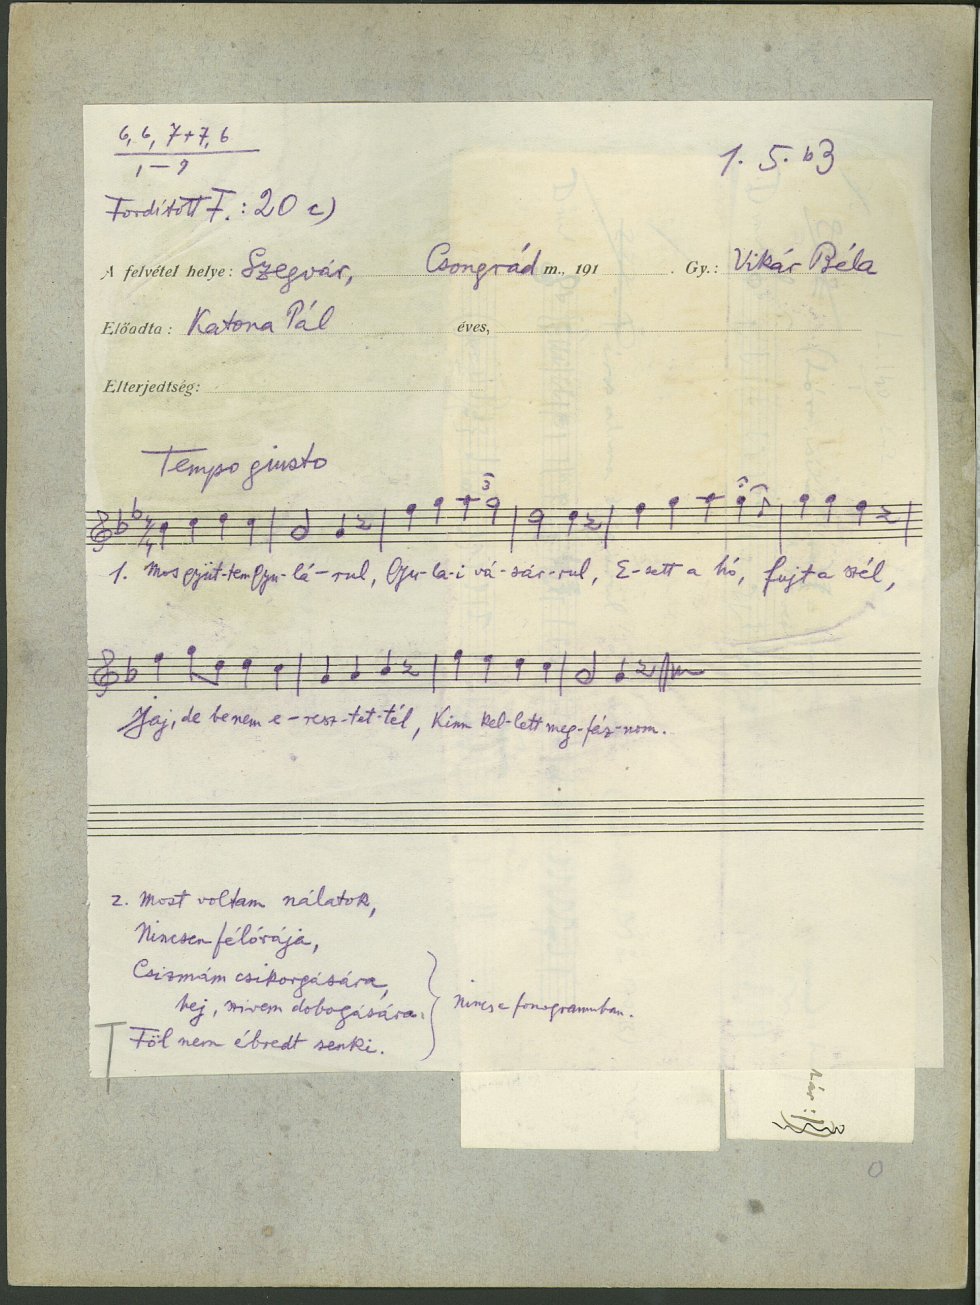 6, 6, 7+7, 6
1 – 9
1. 5. b3
Fordított F.: 20 c)
A felvétel helye: Szegvár, Csongrád m., 191 . Gy.: Vikár Béla
Előadta: Katona Pál éves,
Elterjedtség:
Tempo giusto
3
1. Mos gyüt-tem Gyu-lá-rul, Gyu-la-i vá-sár-rul, E-sett a hó, fujt a szél,
Jaj, de be nem e-resz-tet-tél, Kinn kel-lett meg-fáz-nom.
2. Most voltam nálatok,
Nincsen félórája,
Csizmám csikorgására,
hej, szivem dobogására.
Föl nem ébredt senki.
nincs e fonogrammban.